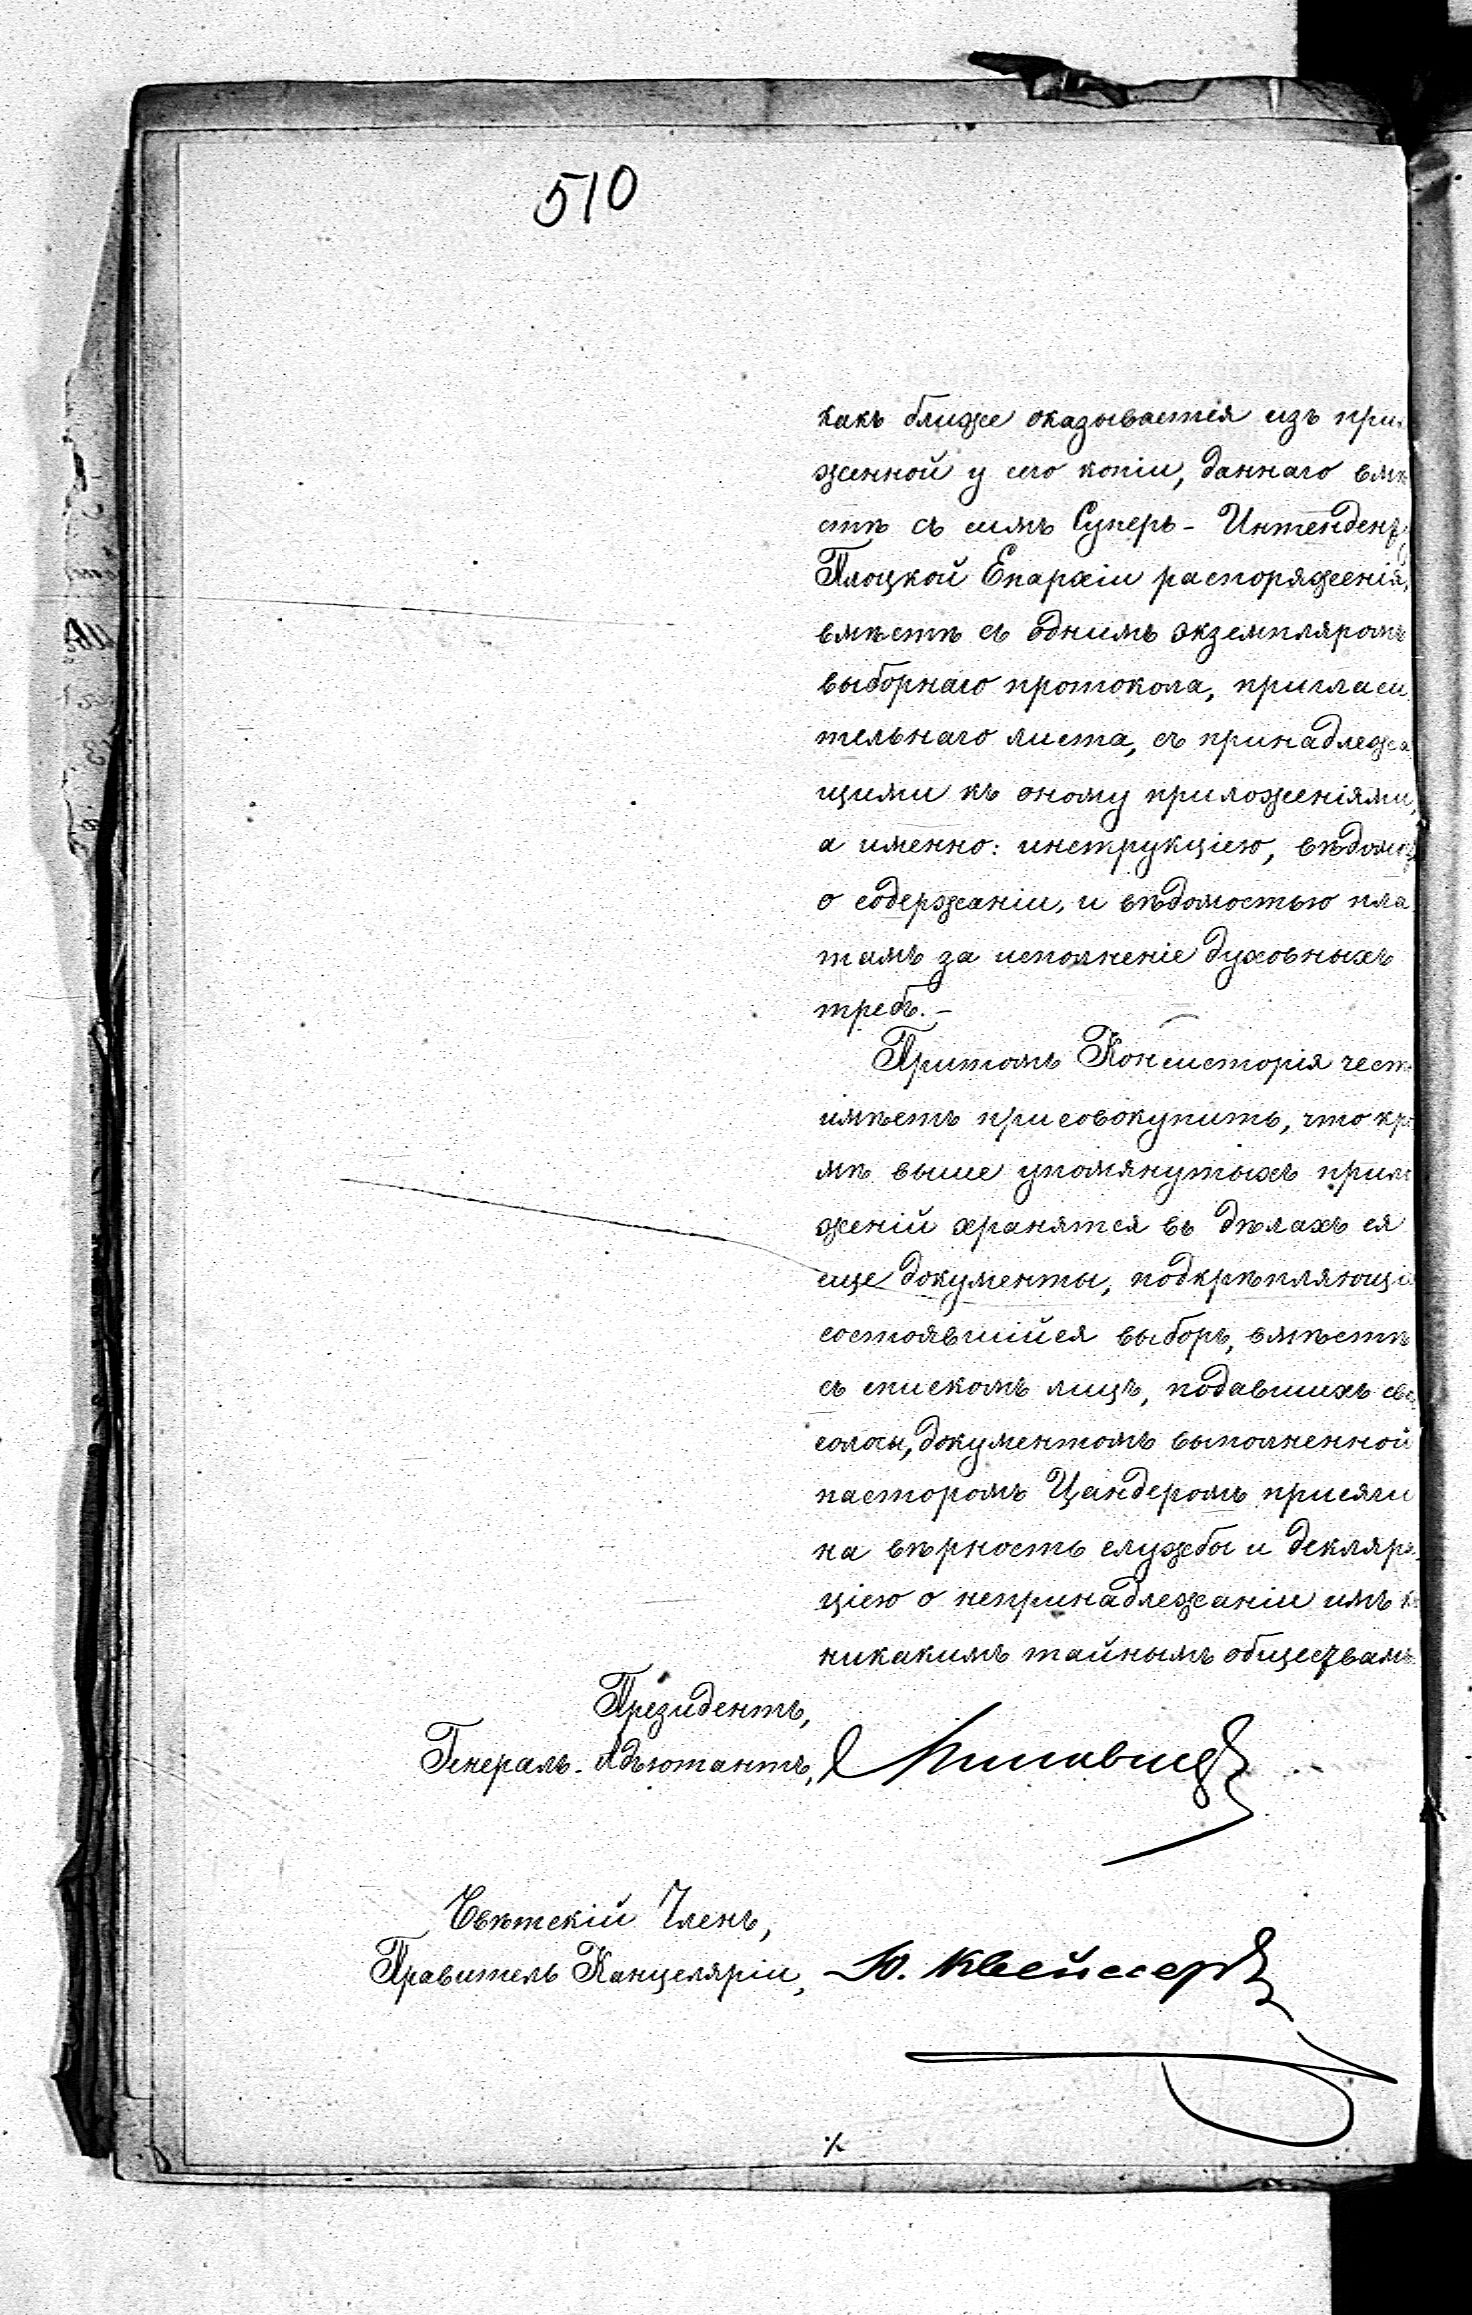 510
какъ ближе оказывается изъ при
женной у сего копіи, даннаго вмѣ
стѣ съ симъ Суперъ-Интендент
Плоцкой Епархіи распоряженія,
вмѣстѣ съ однимъ экземпляромъ
выборнаго протокола, пригласи
тельнаго листа, съ принадлежа
щими къ оному приложеніями,
а именно: инструкціею, вѣдомо
о содержаніи, и вѣдомостью пла
тамъ за исполненіе духовныхъ
требъ.-
Притомъ Консисторія чест
имѣетъ присовокупить, что кро
мѣ выше упомянутыхъ прило
женій хранятся въ дѣлахъ ея
еще документы, подкрѣпляющіе
состоявшійся выборъ, вмѣстѣ
съ спискомъ лицъ, подавшихъ сво
голосы, документомъ выполненной
пасторомъ Цандеромъ присяги
на вѣрность службы и декляра
ціею о непринадлежаніи имъ к
никакимъ тайнымъ обществамъ
Президентъ,
Генералъ-Адъютантъ,
Свѣтскій Членъ,
Правитель Канцеляріи, Ю. Квейссеръ